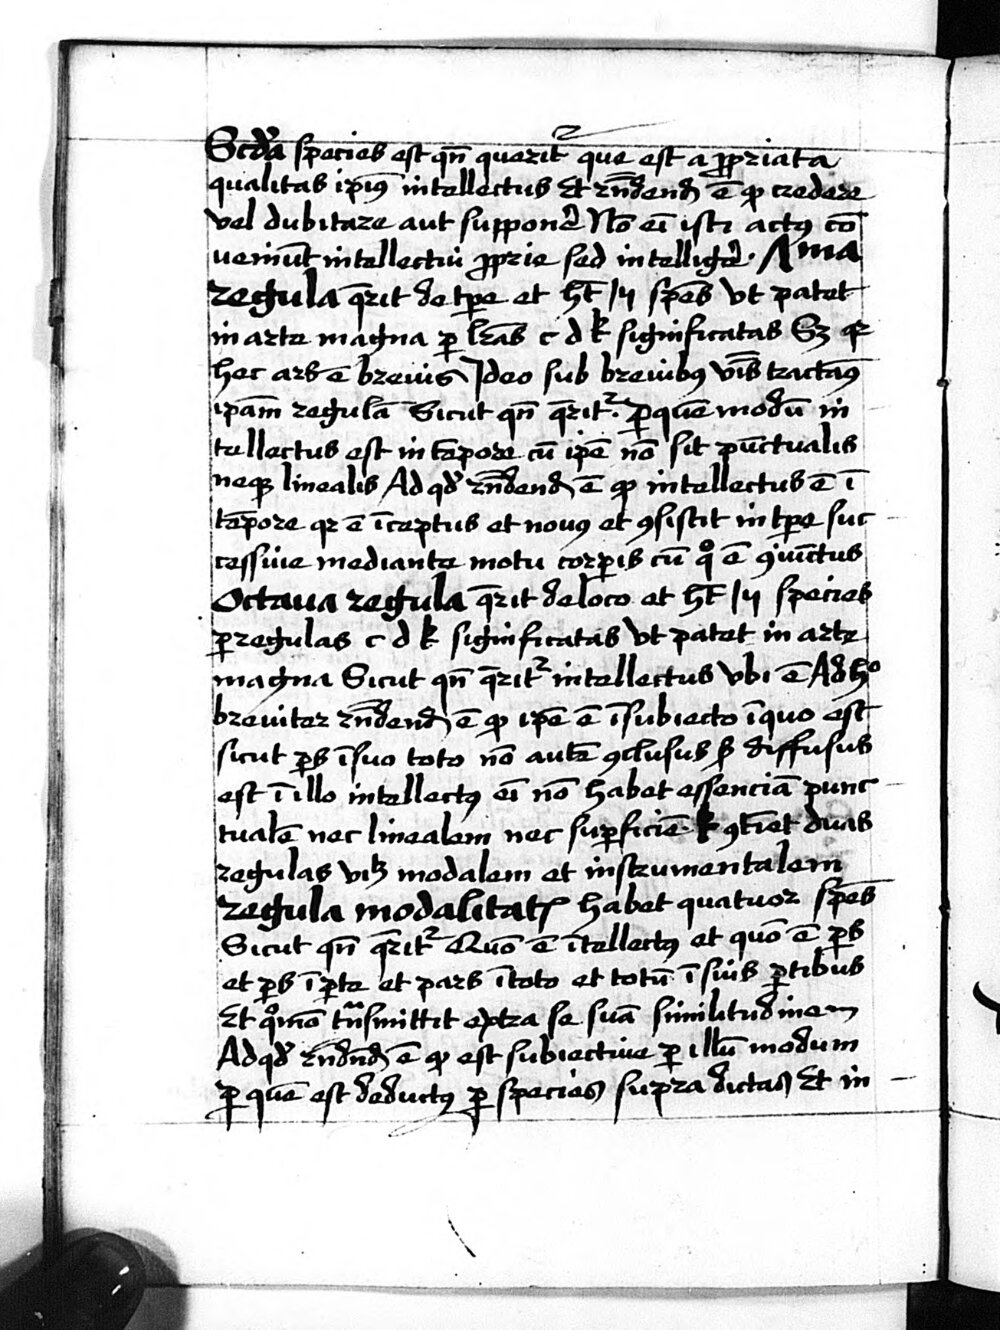 Scd̄a species est qn̄ querit᷑ que est a ꝓpriata
qualitas ipiꝰ intellectus Et rn̄dend̄ ē ꝙ credere
vel dubitare aut suppone᷑ Nō eī isti actꝰ cō
ueniūt intellectui ꝓprie sed intellige᷑. Λ ma
regula q̄rit de tꝑe et hēt iij spēs vt patet
in arte magna ꝑ lr̄as c d k significatas Sꝫ qr
hec ars ē breuis Ideo sub breuibꝰ v̄bis tractāꝰ
ipām regulā Sicut qn̄ q̄rit᷑. ꝑ quē modū in
tellectus est in tēpore cū ipē nō sit pūctualis
neqꝫ linealis Ad qd̄ rn̄dend̄ ē ꝙ intellectus ē ī
tēpore qr ē īceptus et nouꝰ et ꝯsistit in tꝑe suc
cessiue mediante motu corꝑis cū qͦ ē ꝯiūctus
Octaua regula q̄rit de loco et hēt iij species
ꝑ regulas c d k significatas vt patet in arte
magna Sicut qn̄ q̄rit᷑ intellectus vbi ē Ad hͦ
breuiter rn̄dend̄ ē ꝙ ipē ē ī subiecto ī quo est
sicut ꝑs ī suo toto nō autē ꝯclusus sꝫ diffusus
est ī illo intellectꝰ eī nō habet essenciā punc
tualē nec linealem nec suꝑficiē. k ꝯtīet duas
regulas viꝫ modalem et instrumentalem
regula modalitatꝭ habet quatuor spēs
Sicut qn̄ q̄rit᷑ Quō ē ītellectꝰ et quō ē ꝑs
et ꝑs ī ꝑte et pars ī toto et totū ī suis ꝑtibus
Et qͦmō tn̄smittit extra se suā similitudinem
Ad qd̄ rn̄dn̄d̄ ē ꝙ est subiectiue ꝑ illū modum
ꝑ quē est deductꝰ ꝑ species supra dictas Et in